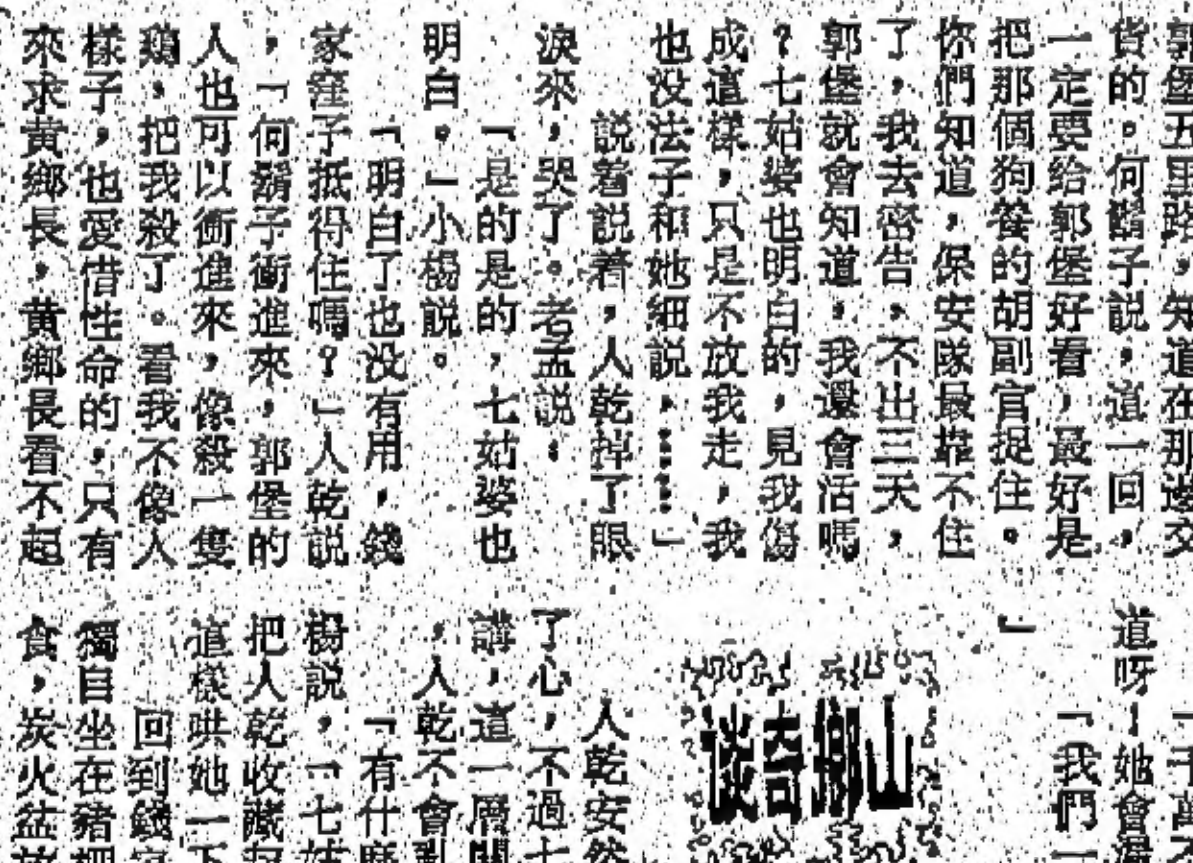 郭堡五里路，知道在那邊交
貨的。何鬍子說，這一回，
一定要给郭堡好看，最好是
把那個狗養的胡副官捉住。
你們知道，保安隊最靠不住
了，我去密告，不出三天，
郭堡就會知道，我還會活嗎
？七姑婆也明白的，見我傷
成這樣，只是不放我走，我
也没法子和她細説，……」
説着説着，人乾掉了眼
淚來，哭了。老孟説：
「是的是的，七姑婆也
明白。」小楊説。
「明白了也没有用，錢
家窪子抵得住嗎？」人乾説
，「何鬍子衝進來，郭堡的
人也可以衝進來，像殺一隻
鷄，把我殺了。看我不像人
樣子，也愛惜性命的，只有
來求黄鄉長，黄鄉長看不起
「一千萬不
道呀！她會
「我們一
」
山鄉奇談
人乾安然
了心，不過七
講，這一層關
，人乾不會亂
「有什麽
楊説，「七姑
把人乾收藏起
這樣哄她一下
回到錢家
獨自坐在豬欄
食，炭火盆放